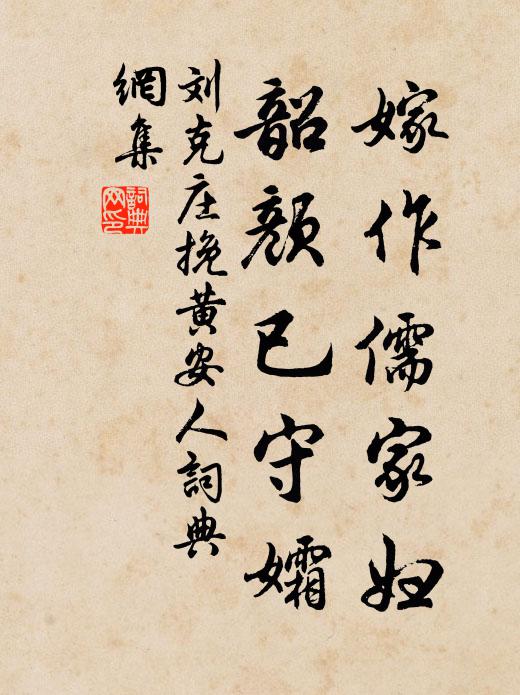 嫁作儒家妇
韶颜已守孀
刘克庄挽黄安人詞典
網集
詞典
网印